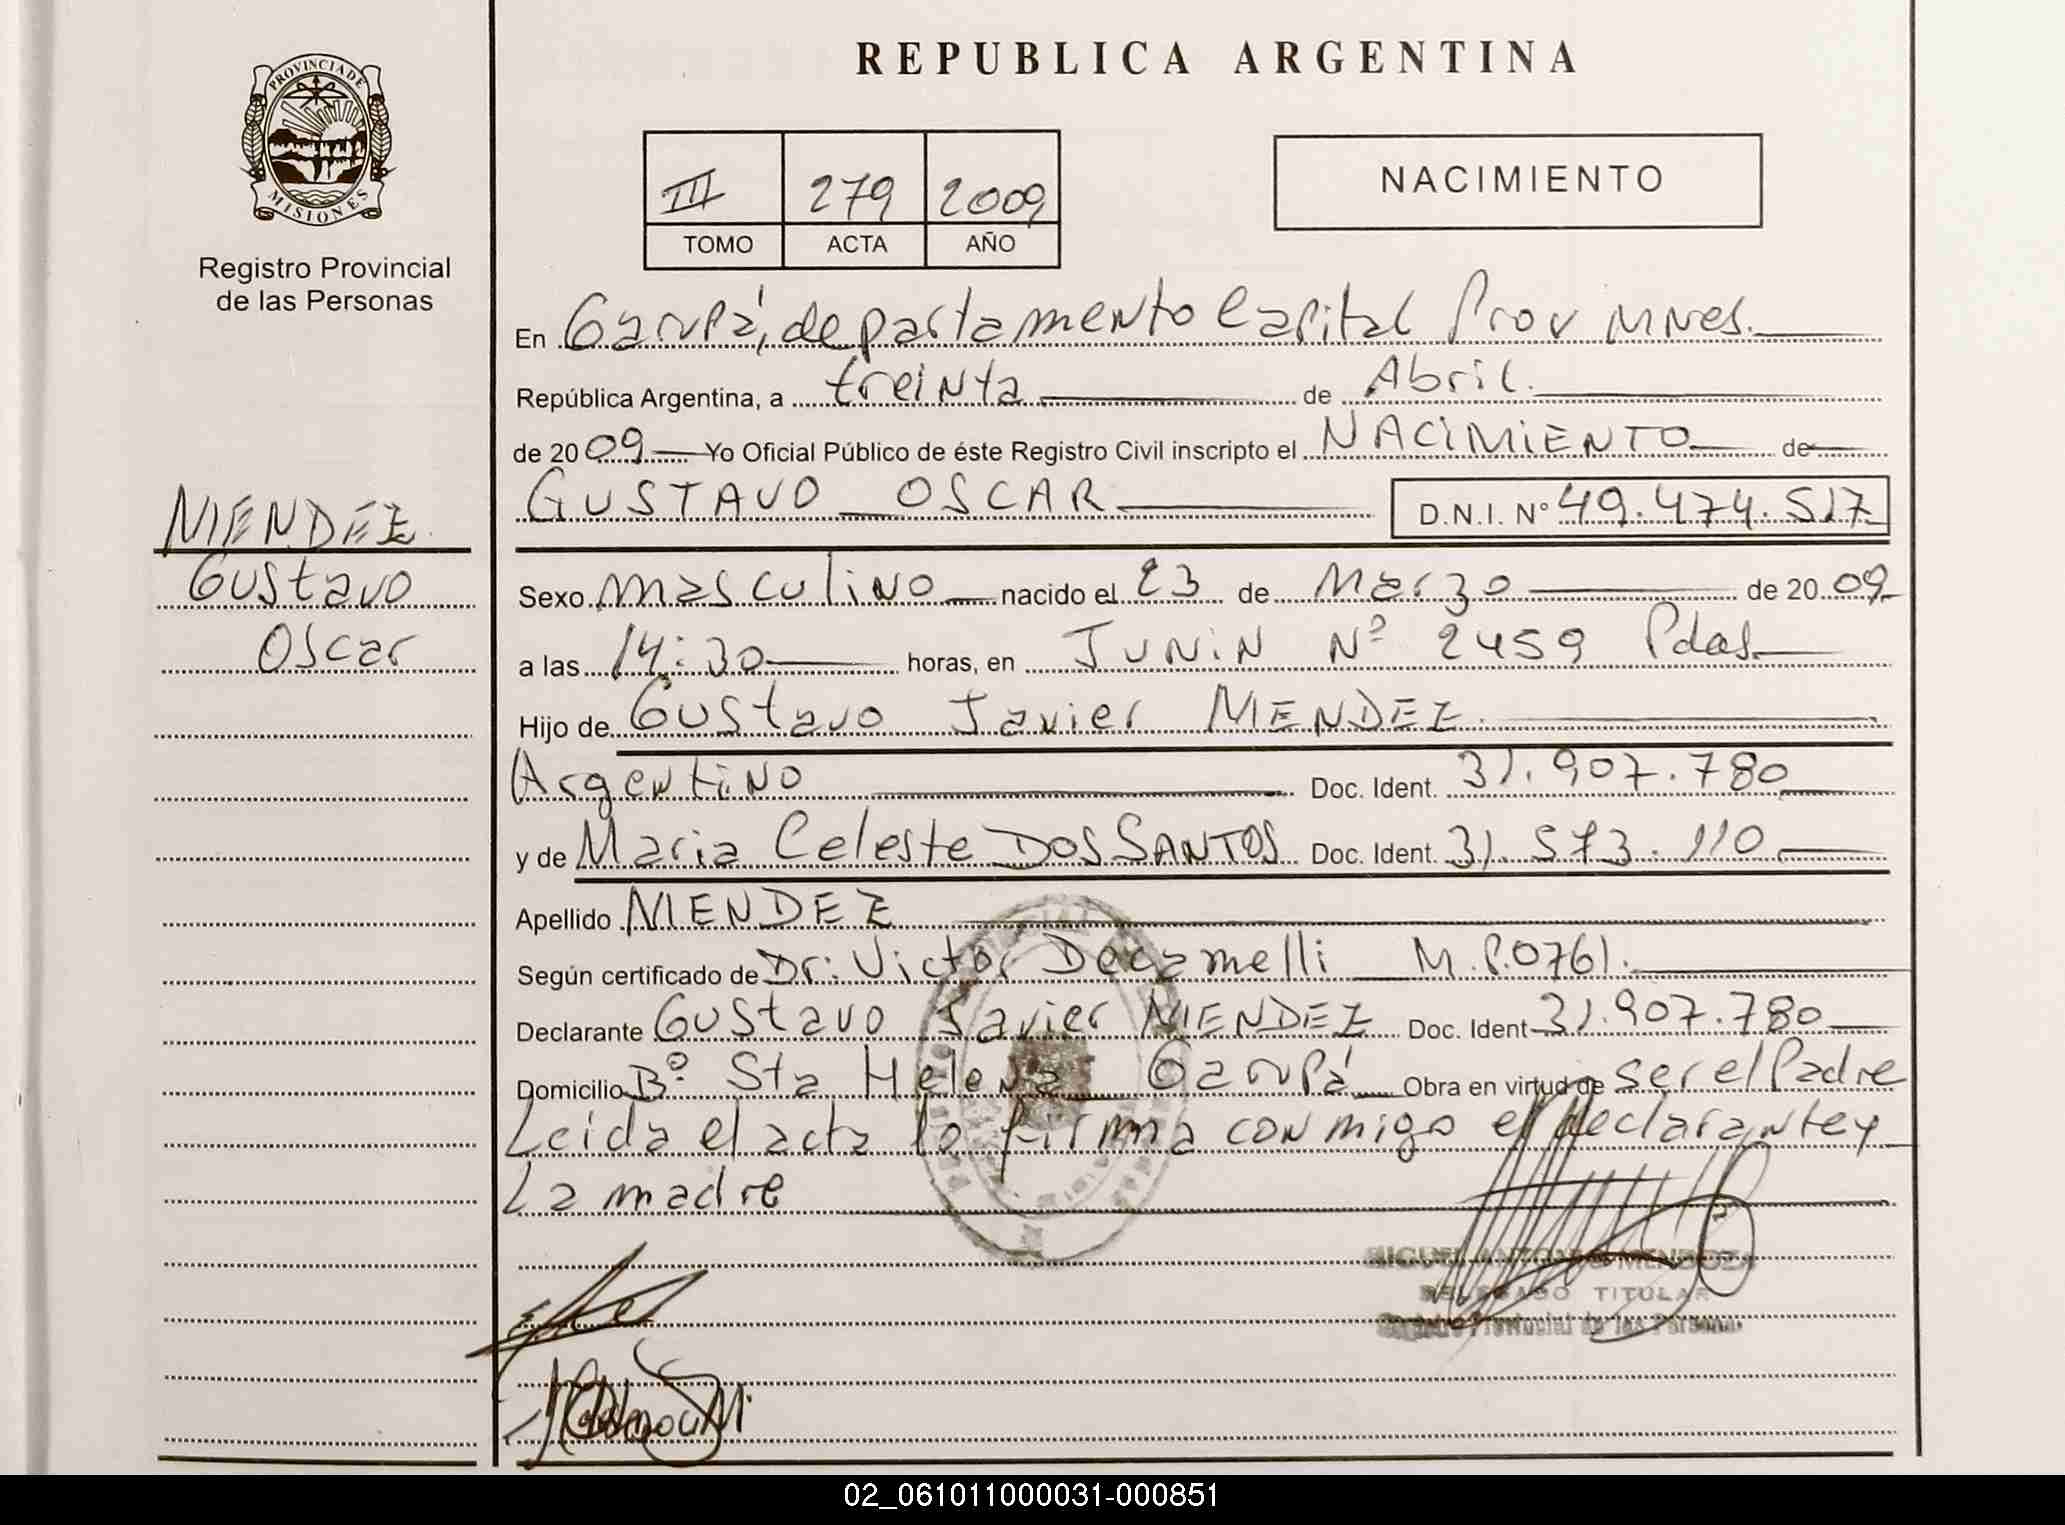 REPUBLICA ARGENTINA
PROVINCIA DE
MISIONES
Registro Provincial
de las Personas
III 279 2009
TOMO ACTA AÑO
NACIMIENTO
En Garupá, departamento Capital Prov Mnes.
República Argentina, a treinta de Abril.
de 2009 Yo Oficial Público de éste Registro Civil inscripto el NACIMIENTO de
GUSTAVO OSCAR D.N.I. Nº 49.474.517
MENDEZ
Gustavo
Oscar
Sexo masculino nacido el 23 de Marzo de 2009
a las 14:30 horas, en JUNIN Nº 2459 Pdas.
Hijo de Gustavo Javier MENDEZ
Argentino Doc. Ident. 31.907.780
y de Maria Celeste DOS SANTOS Doc. Ident. 31.573.110
Apellido MENDEZ
Según certificado de Dr: Victor Decamelli M.P.0761.
Declarante Gustavo Javier MENDEZ Doc. Ident 31.907.780
Domicilio Bº Sta Helena Garupá Obra en virtud de ser el Padre
Leida el acta lo firma conmigo el declarante y
La madre
MIGUEL ANTONIO MENDOZA
DELEGADO TITULAR
Registro Provincial de las Personas
02_061011000031-000851